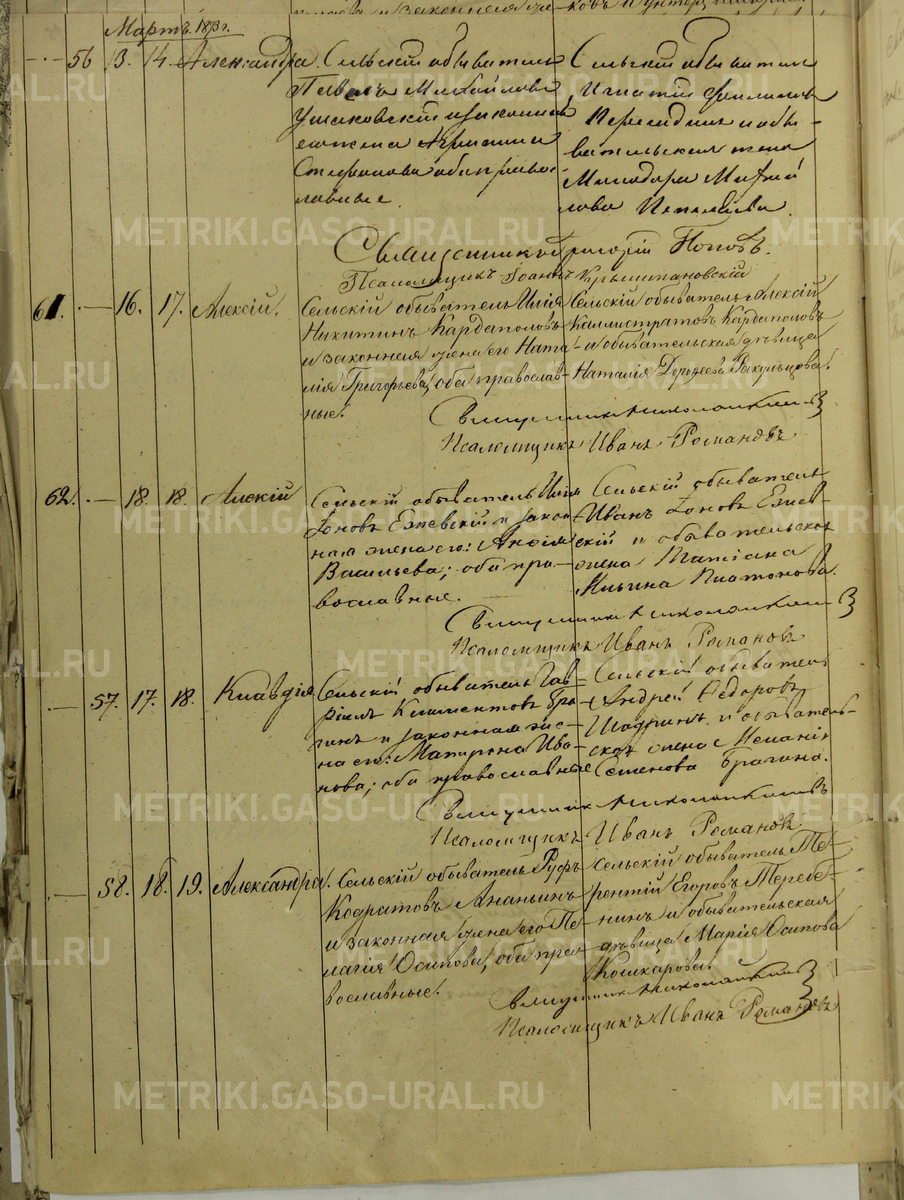 Мартъ 1873 г.
56 13. 14. Александра.
Сельскій обыватель
Павелъ Михайловъ
Ушаковскій и законная
его жена Агрипина
Стефанова оба право-
славные.
Сельскій обыватель
Игнатій Филиповъ
и обы-
вательская жена
Минодора Михай
лова
Священникъ Григорій Поповъ.
Псаломщикъ Іоаннъ Крыштановскій
61. 16. 17. Алексій.
Сельскій обыватель Илія
Никитинъ Кардаполовъ
и законная жена его Ната-
лія Григорьева, оба православ-
ные.
Сельскій обыватель Алексій
Каллистратовъ Кардаполовъ
и обывательская дѣвица
Наталія Дороѳеева
Псаломщикъ Иванъ Романовъ
62. 18. 18. Алексій
Сельскій обыватель Илія
Іоновъ Ежевскій и закон-
ная жена его: Анѳія
Васильева; оба пра-
вославные.
Сельскій обыватель
Иванъ Іоновъ Ежев-
скій и обывательская
жена Татіана
Ильина Платонова.
Псаломщикъ Иванъ Романовъ
57. 17. 18. Клавдія
Сельскій обыватель Гав-
ріилъ Климентовъ Бра-
гинъ и законная же-
на его: Матрона Ива-
нова; оба православные
Сельскій обыватель
Андрей Ѳедоровъ
и обыватель-
ская жена Меланія
Семенова Брагина.
Псаломщикъ Иванъ Романовъ.
58. 18. 19. Александра.
Сельскій обыватель Руфъ
Кодратовъ Ананьинъ
и законная жена его Пе-
лагія Осипова, оба пра-
вославные.
Сельскій обыватель Те-
рентій Егоровъ Теребе-
нинъ и обывательская
дѣвица Марія Осипова
Кошкарова.
Псаломщикъ Иванъ Романовъ
METRIKI.GASO-URAL.RU